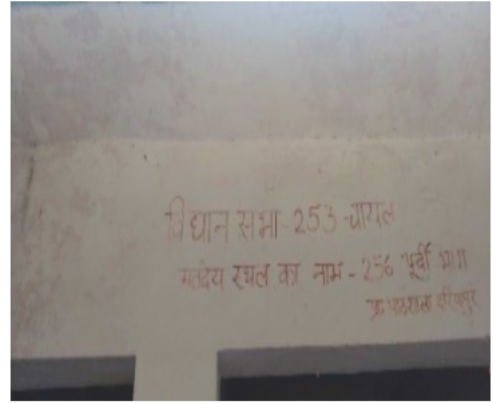 विधान सभा-253-चायल
मतदेय स्थल का नाम - 256 पूर्वी भाग
प्रा० पाठशाला